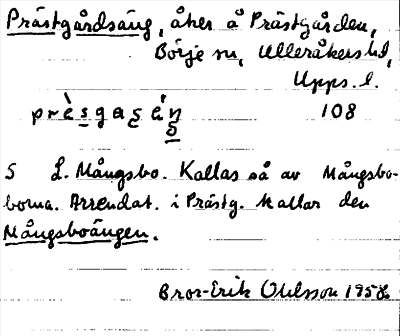 Prästgårdsäng, åker å Prästgården,
Börje sn, Ulleråkers hd,
Upps. l.
prèsgaséŋ 108
5 L. Mångsbo. Kallas så av Mångsbo-
borna. Arrendat. i Prästg. kallar den
Mångsboängen.
Bror-Erik Ohlsson 1958